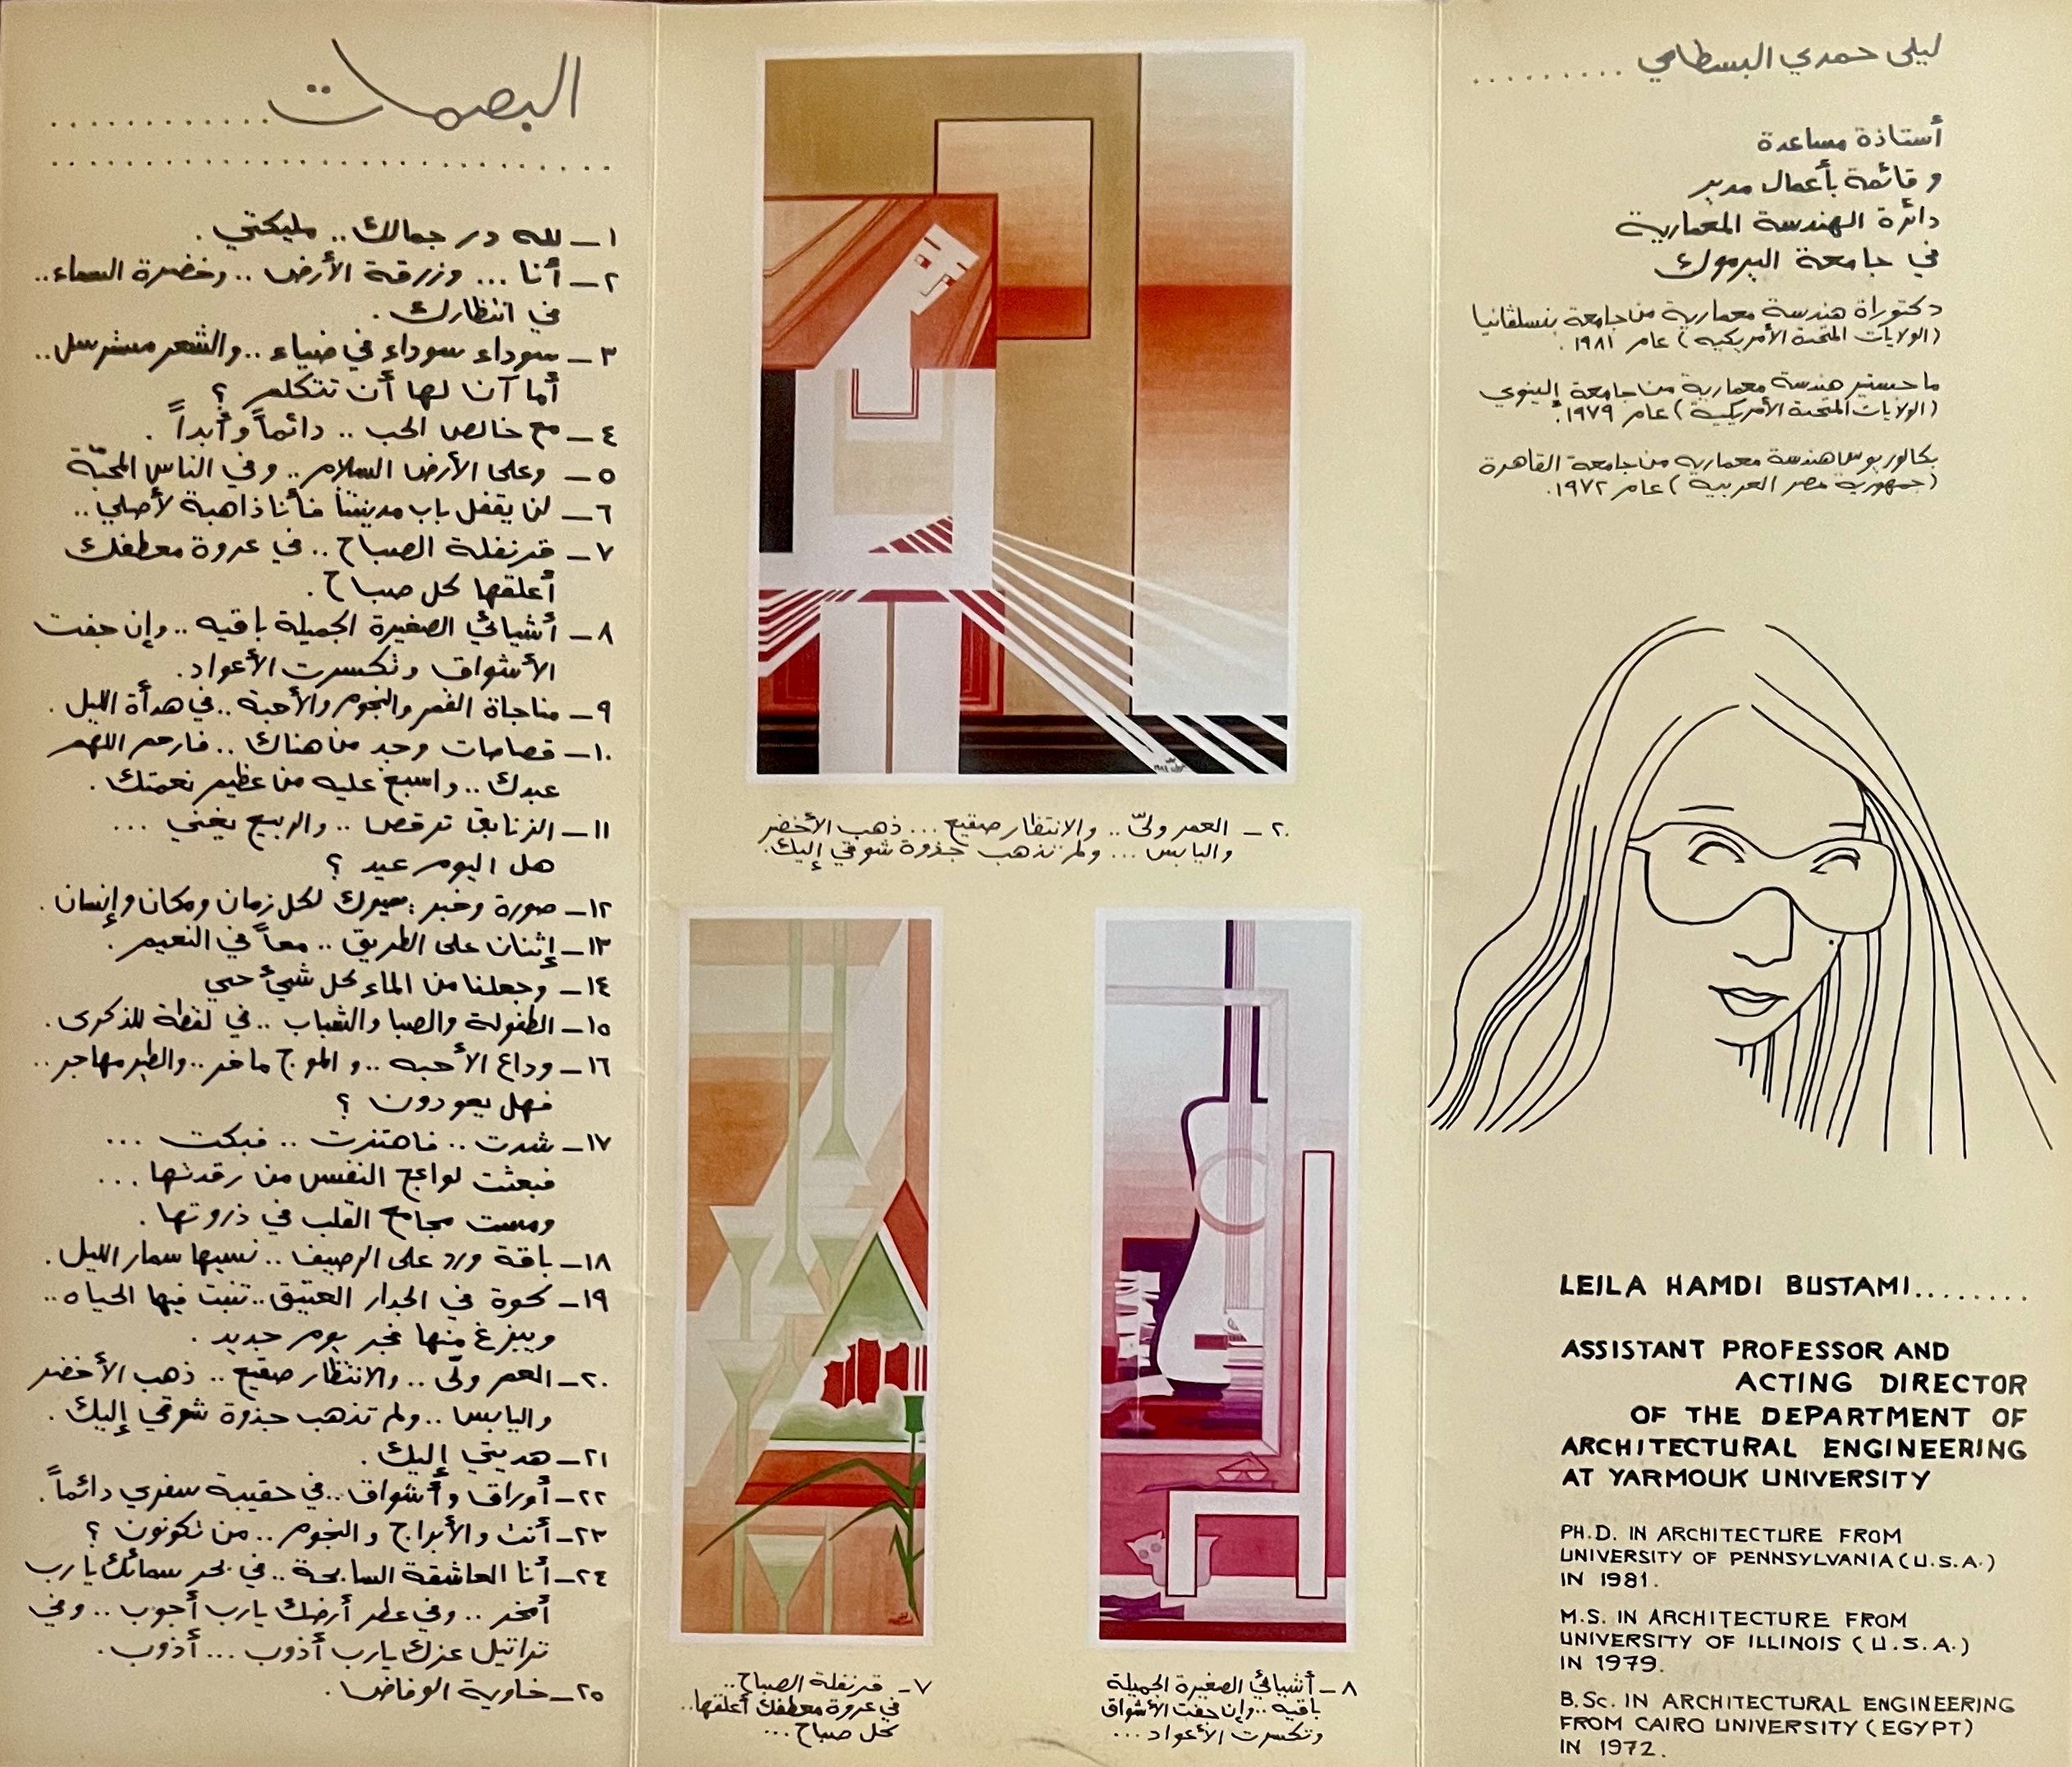 ليلى حمدي البسطامي .........
أستاذة مساعدة
و قائمة بأعمال مدير
دائرة الهندسة المعمارية
في جامعة اليرموك
دكتوراة هندسة معمارية من جامعة بنسلڤانيا
(الولايات المتحدة الأمريكية) عام ١٩٨١.
ماجستير هندسة معمارية من جامعة إلينوي
(الولايات المتحدة الأمريكية) عام ١٩٧٩.
بكالوريوس هندسة معمارية من جامعة القاهرة
(جمهورية مصر العربية) عام ١٩٧٢.
LEILA HAMDI BUSTAMI........
ASSISTANT PROFESSOR AND
ACTING DIRECTOR
OF THE DEPARTMENT OF
ARCHITECTURAL ENGINEERING
AT YARMOUK UNIVERSITY
PH.D. IN ARCHITECTURE FROM
UNIVERSITY OF PENNSYLVANIA (U.S.A.)
IN 1981.
M.S. IN ARCHITECTURE FROM
UNIVERSITY OF ILLINOIS (U.S.A.)
IN 1979.
B.Sc. IN ARCHITECTURAL ENGINEERING
FROM CAIRO UNIVERSITY (EGYPT)
IN 1972.
٢٠ــ العمر ولىّ .. والانتظار صقيع ... ذهب الأخضر
واليابس ... ولم تذهب جذوة شوقي إليك.
٨ــ أشيائي الصغيرة الجميلة
باقيه .. وإن جفت الأشواق
وتكسرت الأعواد ...
٧ــ قرنفلة الصباح ..
في عروة معطفك أعلقها..
كل صباح ...
البصمات ............
............................
١ــ لله در جمالك .. مليكتي .
٢ــ أنا ... وزرقة الأرض .. وخضرة السماء ..
في انتظارك .
٣ــ سوداء سوداء في ضياء .. والشعر مسترسل ..
أما آن لها أن تتكلم ؟
٤ــ مع خالص الحب .. دائماً وأبداً .
٥ــ وعلى الأرض السلام .. وفي الناس المحبّة
٦ــ لن يقفل باب مدينتنا فأنا ذاهبة لأصلي ..
٧ــ قرنفلة الصباح .. في عروة معطفك
أعلقها كل صباح .
٨ــ أشيائي الصغيرة الجميلة باقيه .. وإن جفت
الأشواق وتكسرت الأعواد .
٩ــ مناجاة القمر والنجوم والأحبة .. في هدأة الليل .
١٠ــ قصاصات وجد من هناك .. فارحم اللهم
عبدك .. واسبغ عليه من عظيم نعمتك .
١١ــ الزنابق ترقص .. والربيع يغني ...
هل اليوم عيد ؟
١٢ــ صورة وخبر : ميرك لكل زمان ومكان وإنسان .
١٣ــ إثنان على الطريق .. معاً في النعيم .
١٤ــ وجعلنا من الماء كل شيئ حي
١٥ــ الطفولة والصبا والشباب .. في لقطة للذكرى .
١٦ــ وداع الأحبه .. و الموج ماخر .. والطير مهاجر ..
فهل يعودون ؟
١٧ــ شدت .. فاهتزت .. فبكت ...
فبعثت لواعج النفس من رقدتها ...
ومست مجامع القلب في ذروتها .
١٨ــ باقة ورد على الرصيف .. نسيها سمار الليل .
١٩ــ كوة في الجدار العتيق .. تنبت فيها الحياه ..
ويبزغ منها فجر يوم جديد .
٢٠ــ العمر ولىّ .. والانتظار صقيع .. ذهب الأخضر
واليابس .. ولم تذهب جذوة شوقي إليك .
٢١ــ هديتي إليك .
٢٢ــ أوراق وأشواق .. في حقيبة سفري دائماً .
٢٣ــ أنت والأبراج والنجوم .. من تكونون ؟
٢٤ــ أنا العاشقة السابحة .. في بحر سمائك يا رب
أمخر .. وفي عطر أرضك يارب أجوب .. وفي
تراتيل عزك يارب أذوب ... أذوب .
٢٥ــ خاوية الوفاض .